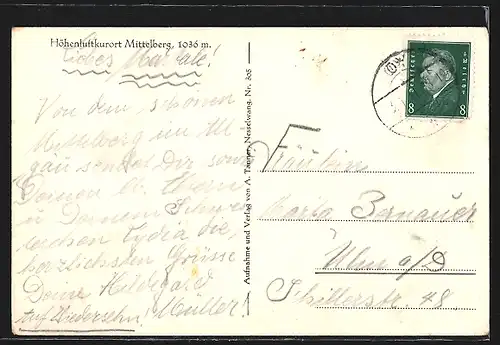 Höhenluftkurort Mittelberg, 1036 m.
Liebes
Von dem schönen
Mittelberg im All
gäu sendet Dir sowie
Deinen lb. Eltern
u. Deinem Schwe
terchen Lydia die
herzlichsten Grüsse
Deine Hildegard
Auf Wiedersehn! Müller!
Aufnahme und Verlag von A. Tanner, Nesselwang. Nr. 305
Deutsches Reich
8 8
Fräulein
Maria Bernauer
Ulm a/D
Schillerstr. 48.